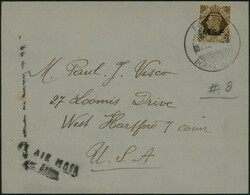 Mr. Paul J. Visco
# 8
27 Loomis Drive
West Hartford 7 Conn
U. S. A
AIR MAIL